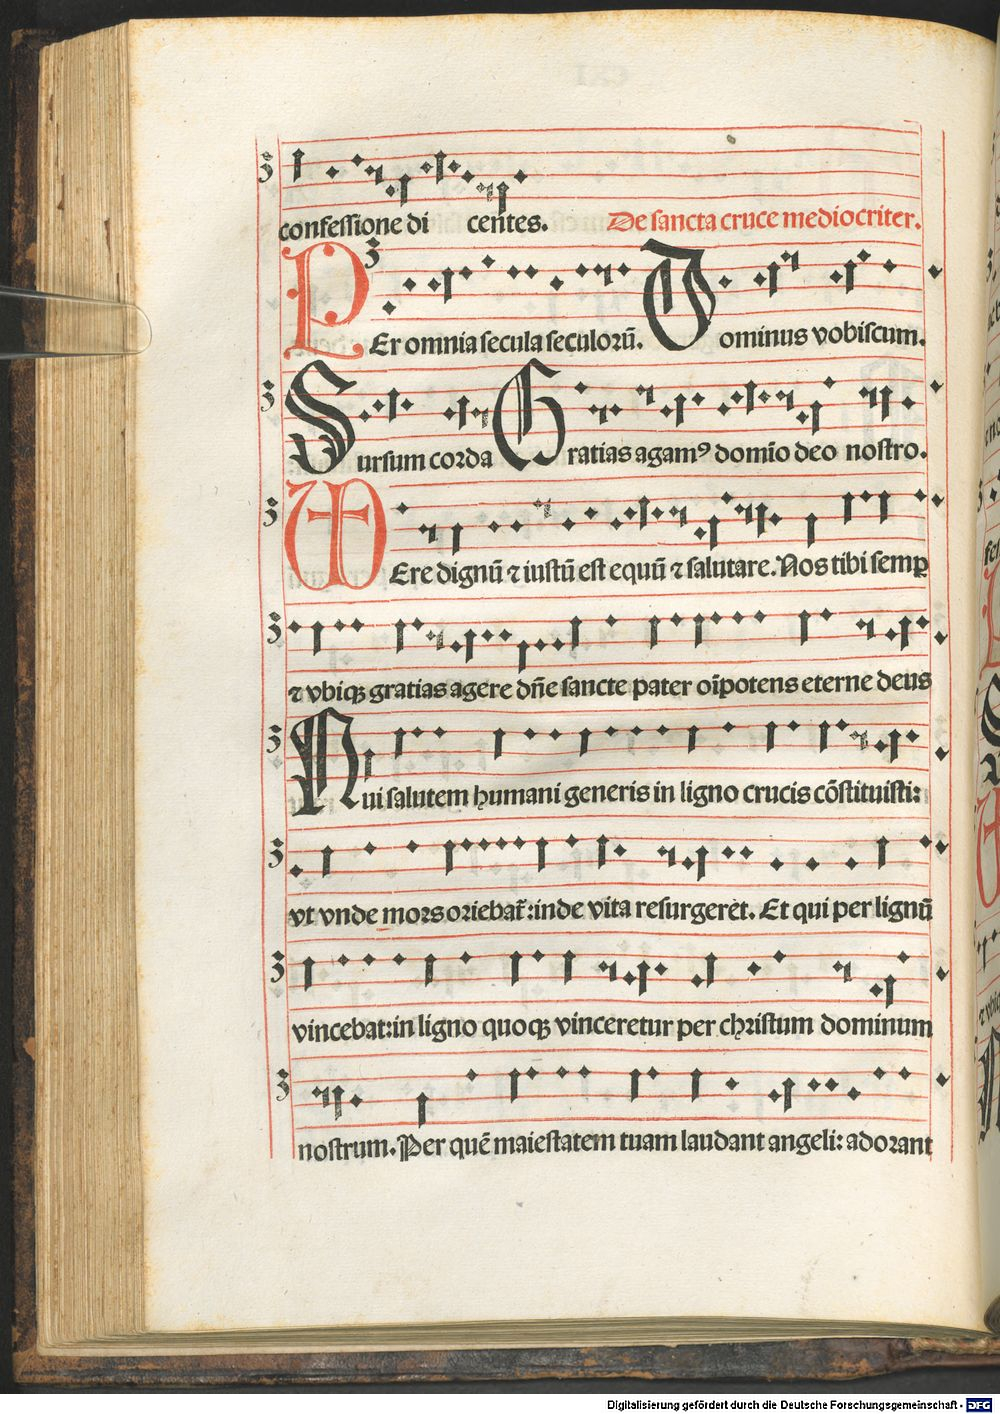 confessione di centes. De sancta cruce mediocriter.
PEr omnia secula seculorū. Dominus vobiscum.
Sursum corda Gratias agamꝰ domīo deo nostro.
VEre dignū ⁊ iustū est equū ⁊ salutare. Nos tibi semꝑ
⁊ vbiqꝫ gratias agere dn̄e sancte pater oīpotens eterne deus
Qui salutem humani generis in ligno crucis cōstituisti:
vt vnde mors oriebat̄: inde vita resurgeret. Et qui per lignū
vincebat: in ligno quoqꝫ vinceretur per christum dominum
nostrum. Per quē maiestatem tuam laudant angeli: adorant
Digitalisierung gefördert durch die Deutsche Forschungsgemeinschaft - DFG